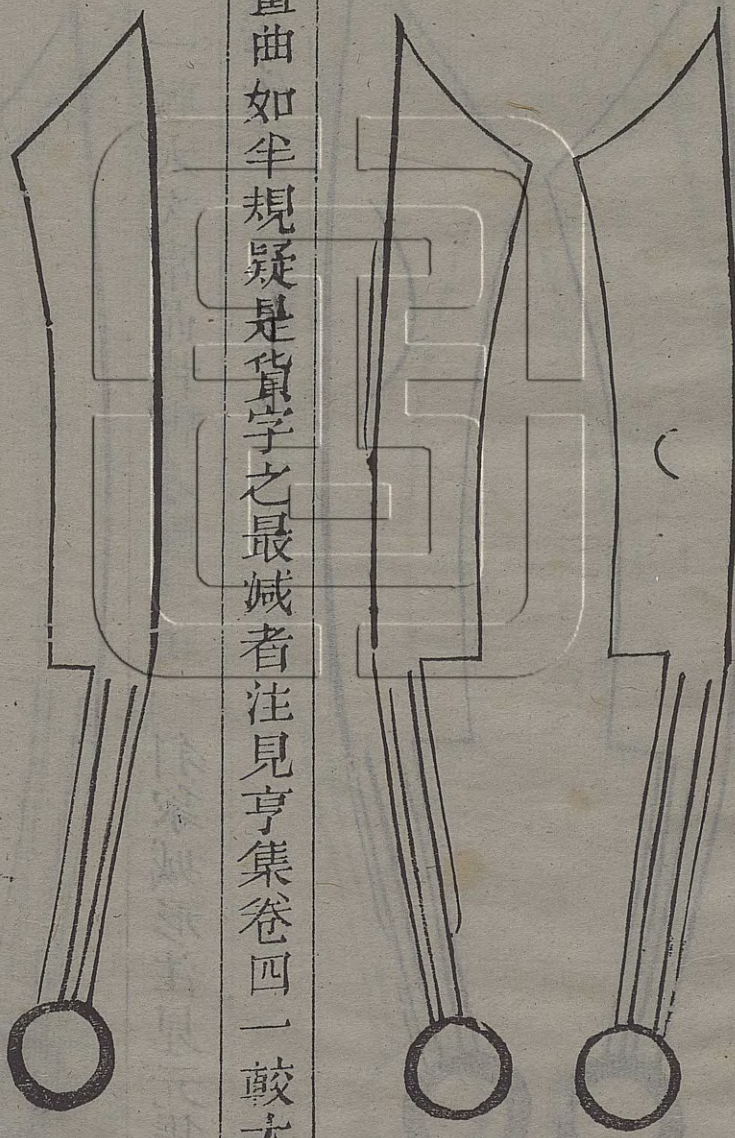 曲如半規疑是貨字之最减者注見亨集卷四一較